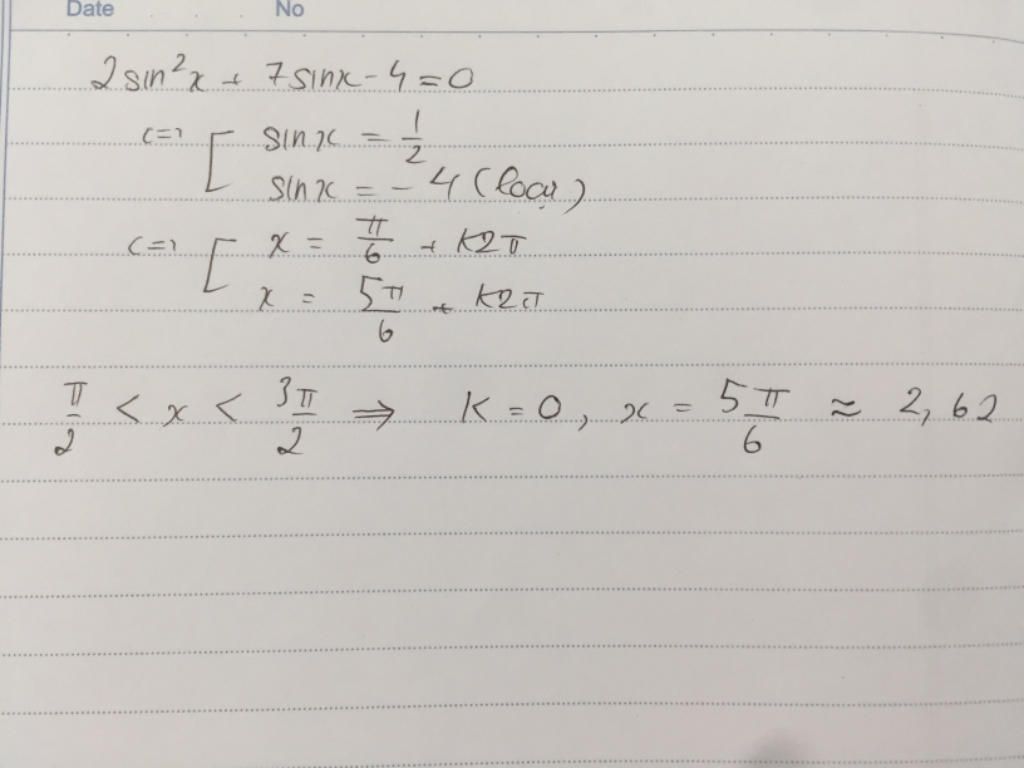 Date No
2sin²x + 7sinx - 4 = 0
<=> [ sinx = 1/2
sinx = -4 (loại)
<=> [ x = π/6 + K2π
x = 5π/6 + K2π
π/2 < x < 3π/2 => K = 0, x = 5π/6 ≈ 2,62